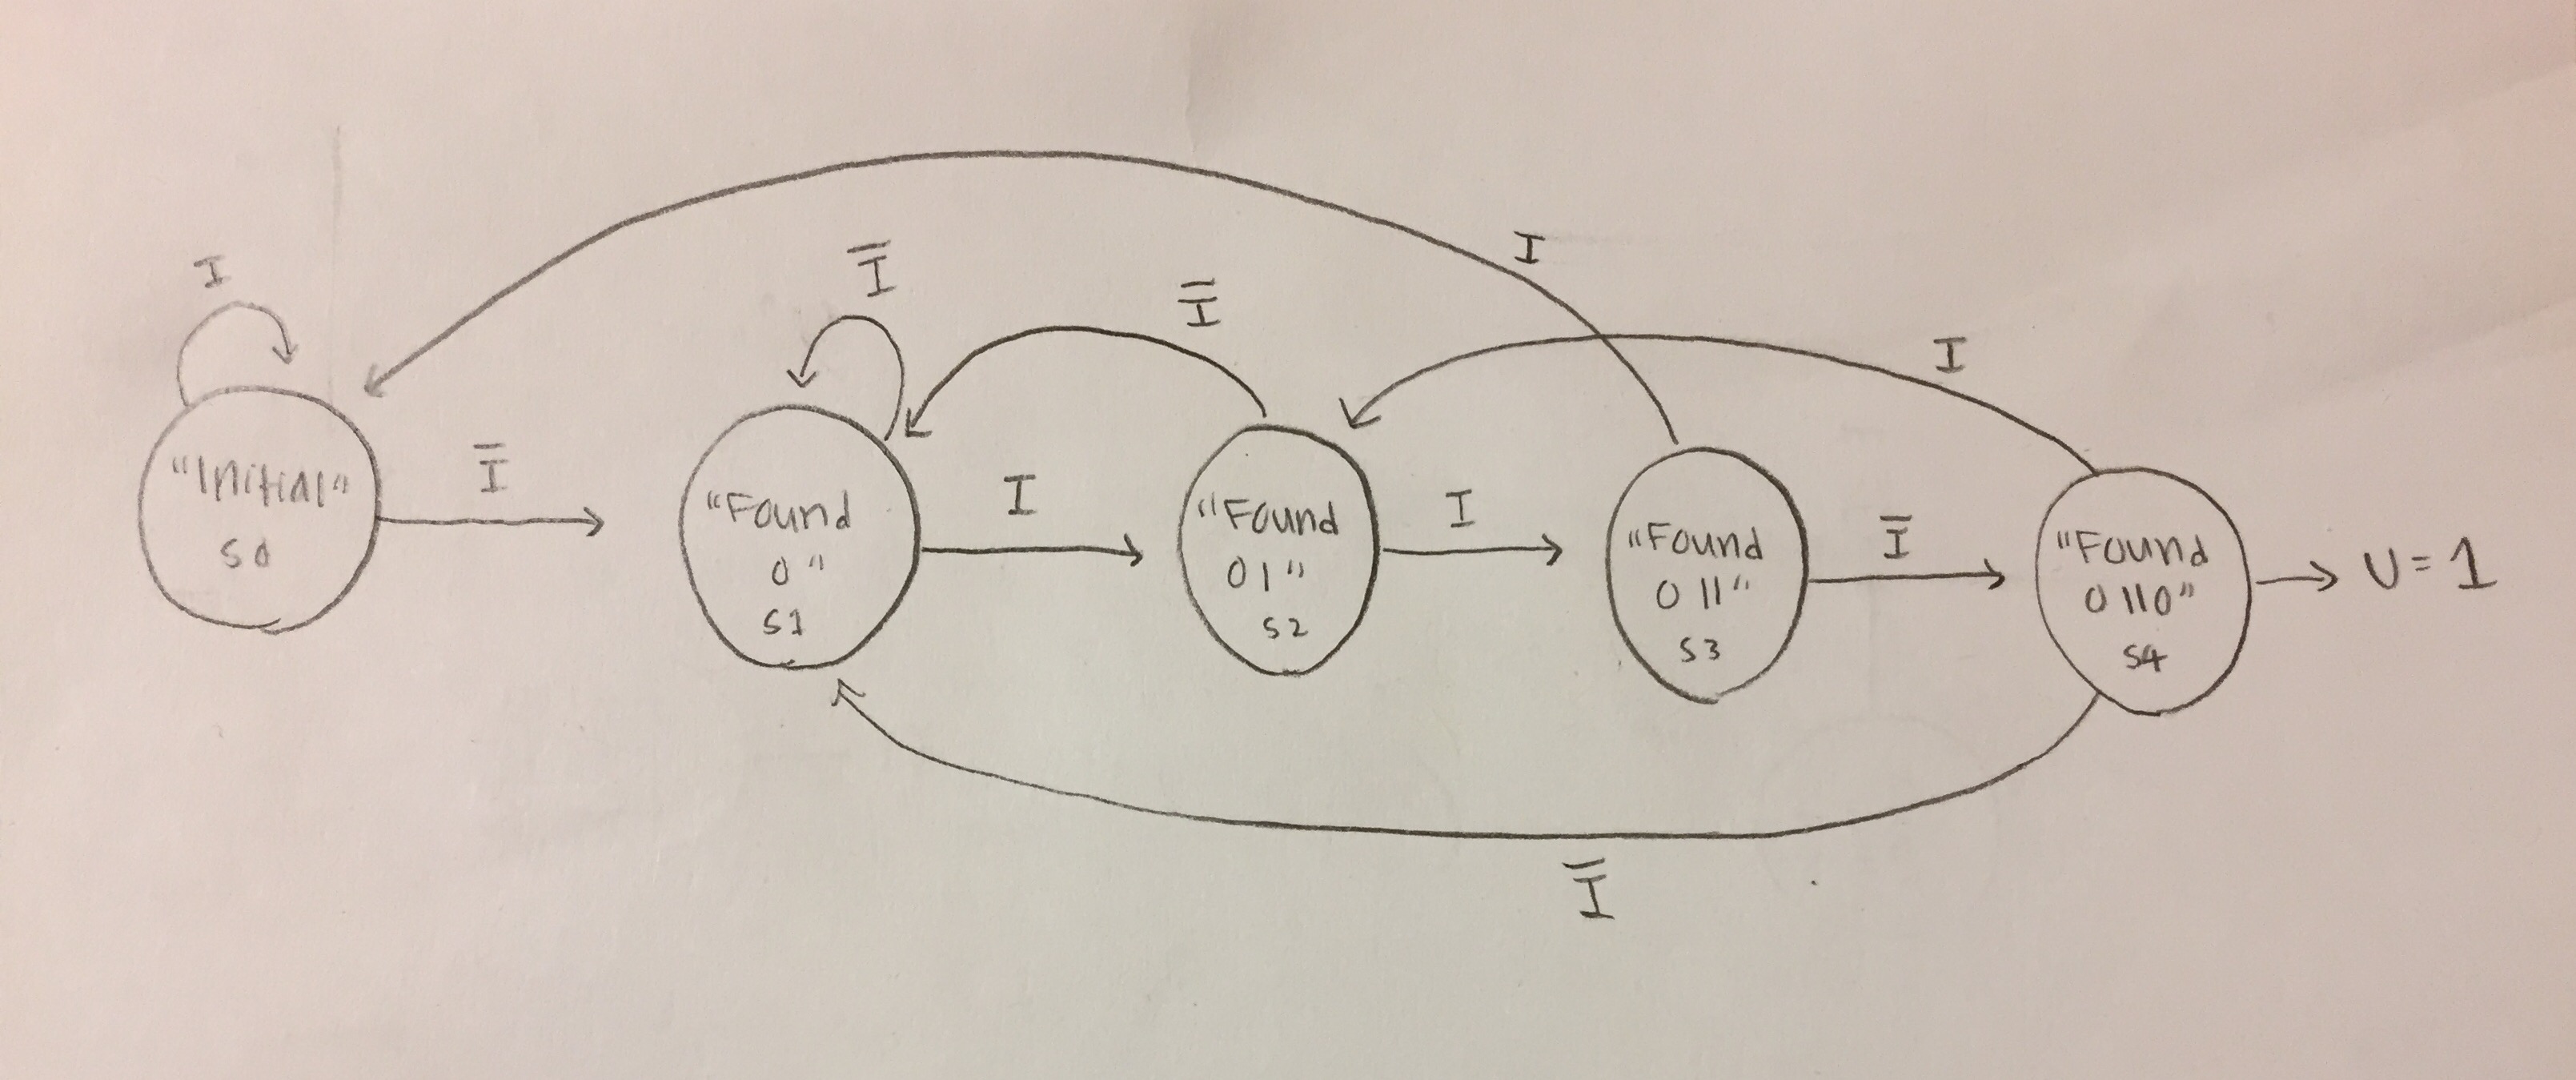 I
I
Ī
Ī
I
"Initial"
S0
Ī
"Found
0"
S1
I
"Found
01"
S2
I
"Found
011"
S3
Ī
"Found
0110"
S4
U = 1
Ī